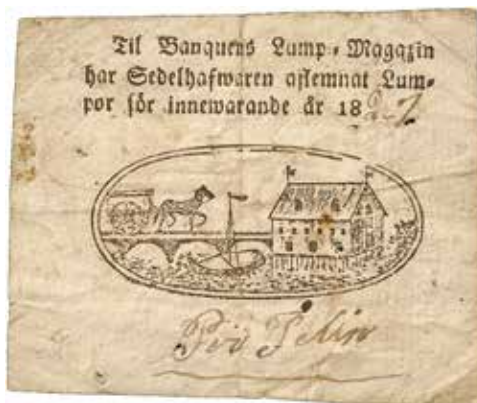 Til Banquens Lump-Magazin
har Sedelhafwaren aflemnat Lum-
por för innewarande år 1827